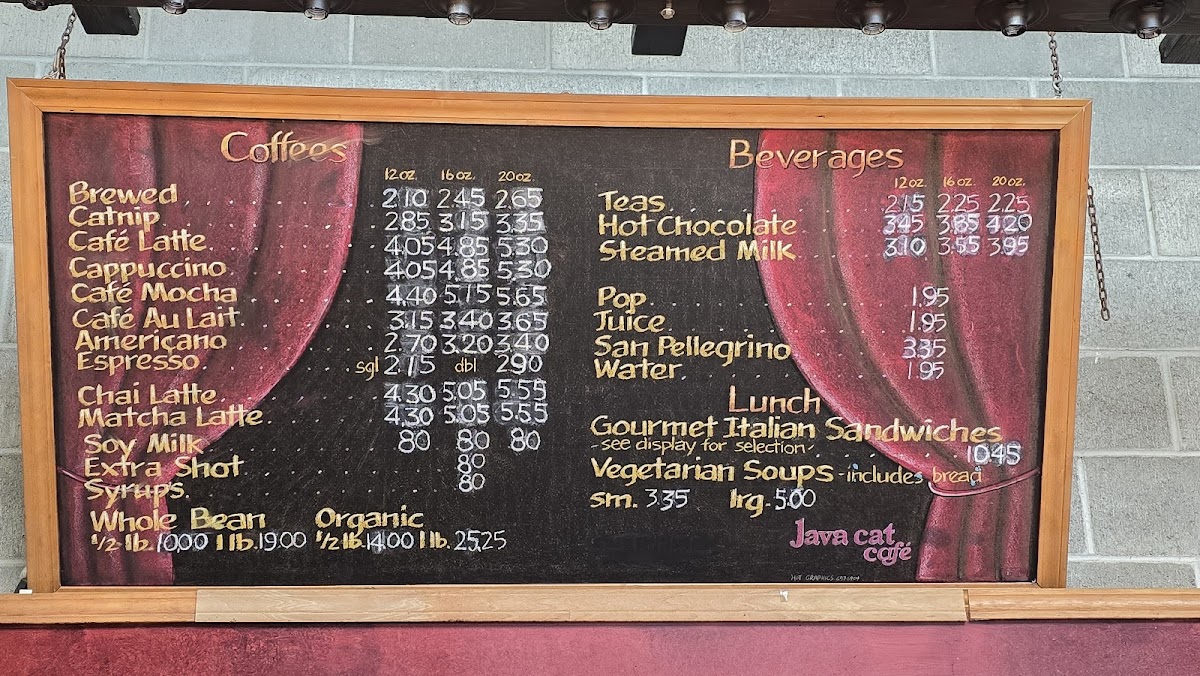 Coffees
12 oz. 16 oz. 20 oz.
Brewed 2.10 2.45 2.65
Catnip 2.85 3.15 3.35
Café Latte 4.05 4.85 5.30
Cappuccino 4.05 4.85 5.30
Café Mocha 4.40 5.15 5.65
Café Au Lait 3.15 3.40 3.65
Americano 2.70 3.20 3.40
Espresso sgl 2.15 dbl 2.90
Chai Latte 4.30 5.05 5.55
Matcha Latte 4.30 5.05 5.55
Soy Milk 80 80 80
Extra Shot 80
Syrups 80
Whole Bean Organic
1/2 lb. 10.00 1 lb. 19.00 1/2 lb. 14.00 1 lb. 25.25
Beverages
12 oz. 16 oz. 20 oz.
Teas 2.15 2.25 2.25
Hot Chocolate 3.45 3.85 4.20
Steamed Milk 3.10 3.55 3.95
Pop 1.95
Juice 1.95
San Pellegrino 3.35
Water 1.95
Lunch
Gourmet Italian Sandwiches
- see display for selection - 10.45
Vegetarian Soups - includes bread
sm. 3.35 lrg. 5.00
Java cat
café